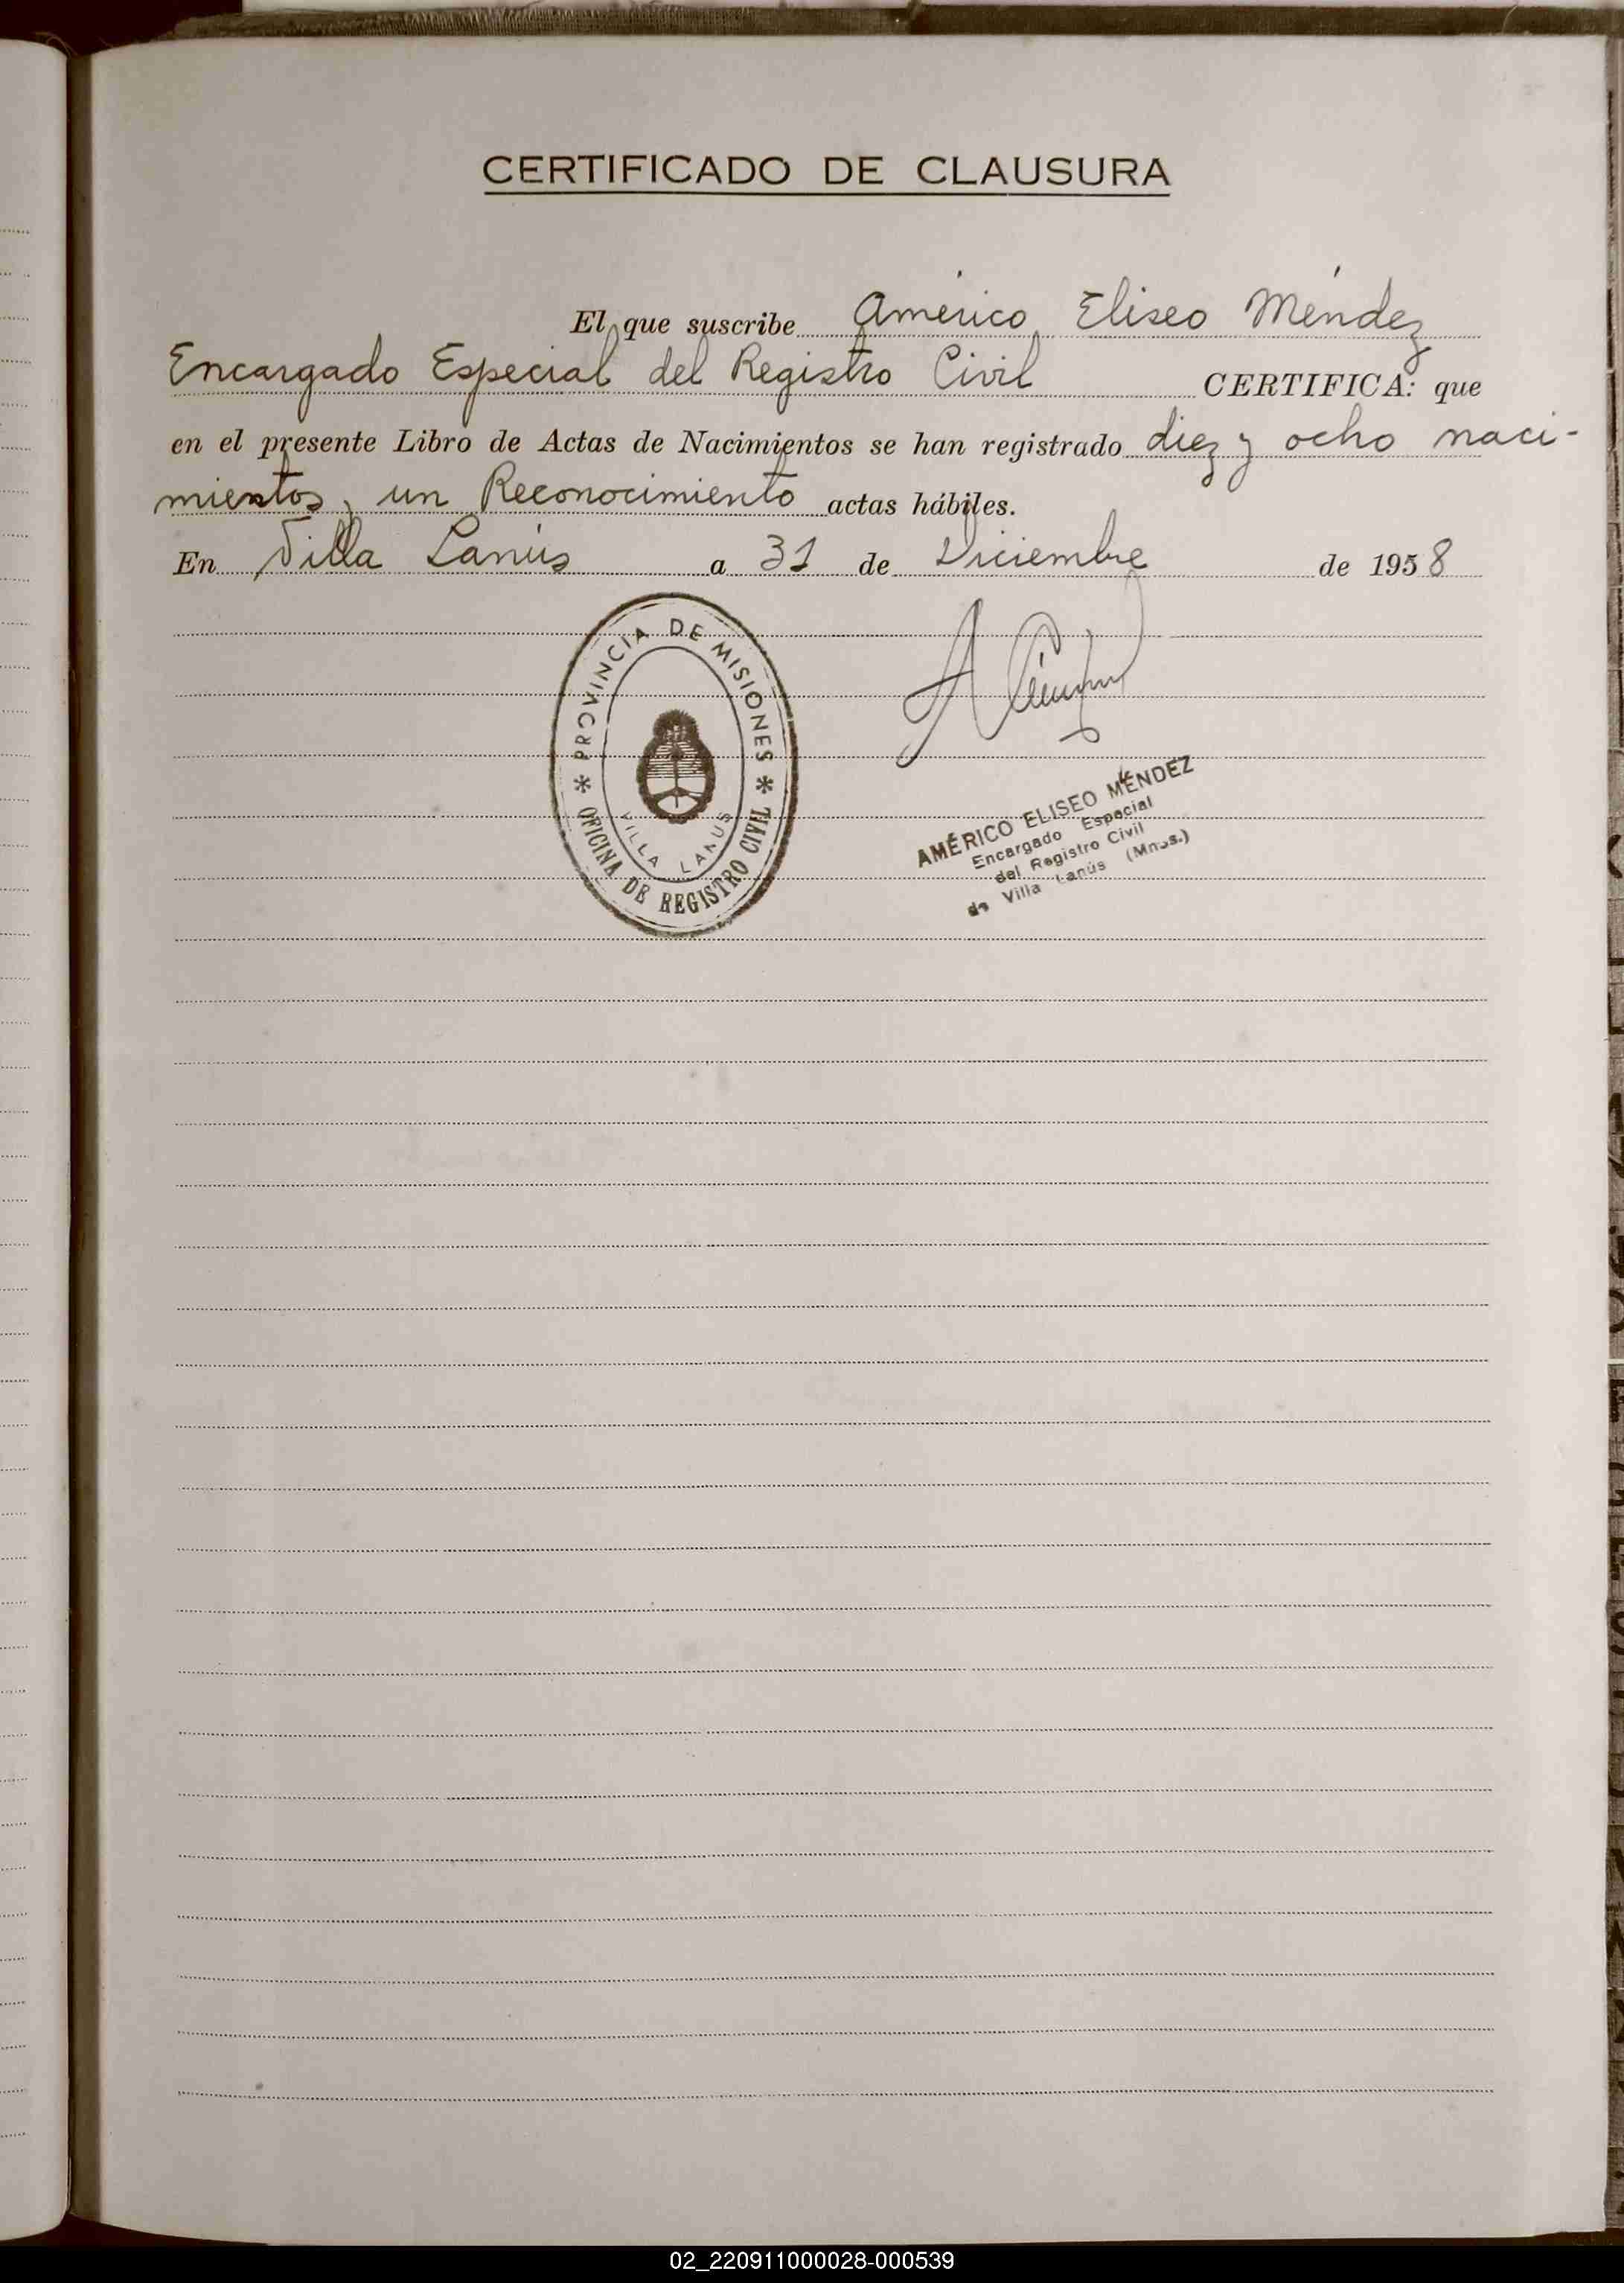 CERTIFICADO DE CLAUSURA
El que suscribe Américo Eliseo Méndez
Encargado Especial del Registro Civil CERTIFICA: que
en el presente Libro de Actas de Nacimientos se han registrado diez y ocho naci-
mientos, un Reconocimiento actas hábiles.
En Villa Lanús a 31 de Diciembre de 1958
PROVINCIA DE MISIONES
VILLA LANUS
* OFICINA DE REGISTRO CIVIL *
AMÉRICO ELISEO MÉNDEZ
Encargado Especial
del Registro Civil
de Villa Lanús (Mnes.)
02_220911000028-000539